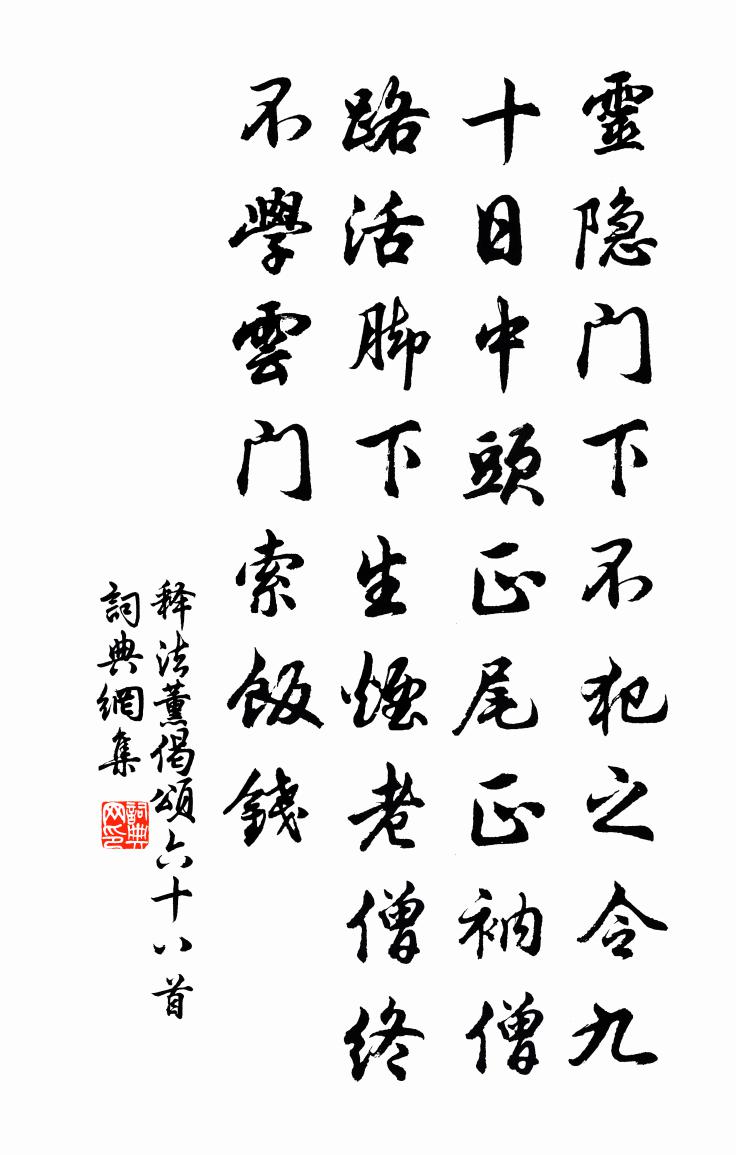 靈隐门下不犯之令九
十日中頭正尾正衲僧
路活脚下生煙老僧终
不學雲门索飯錢
释法薰偈頌六十八首
詞典網集
詞典网印